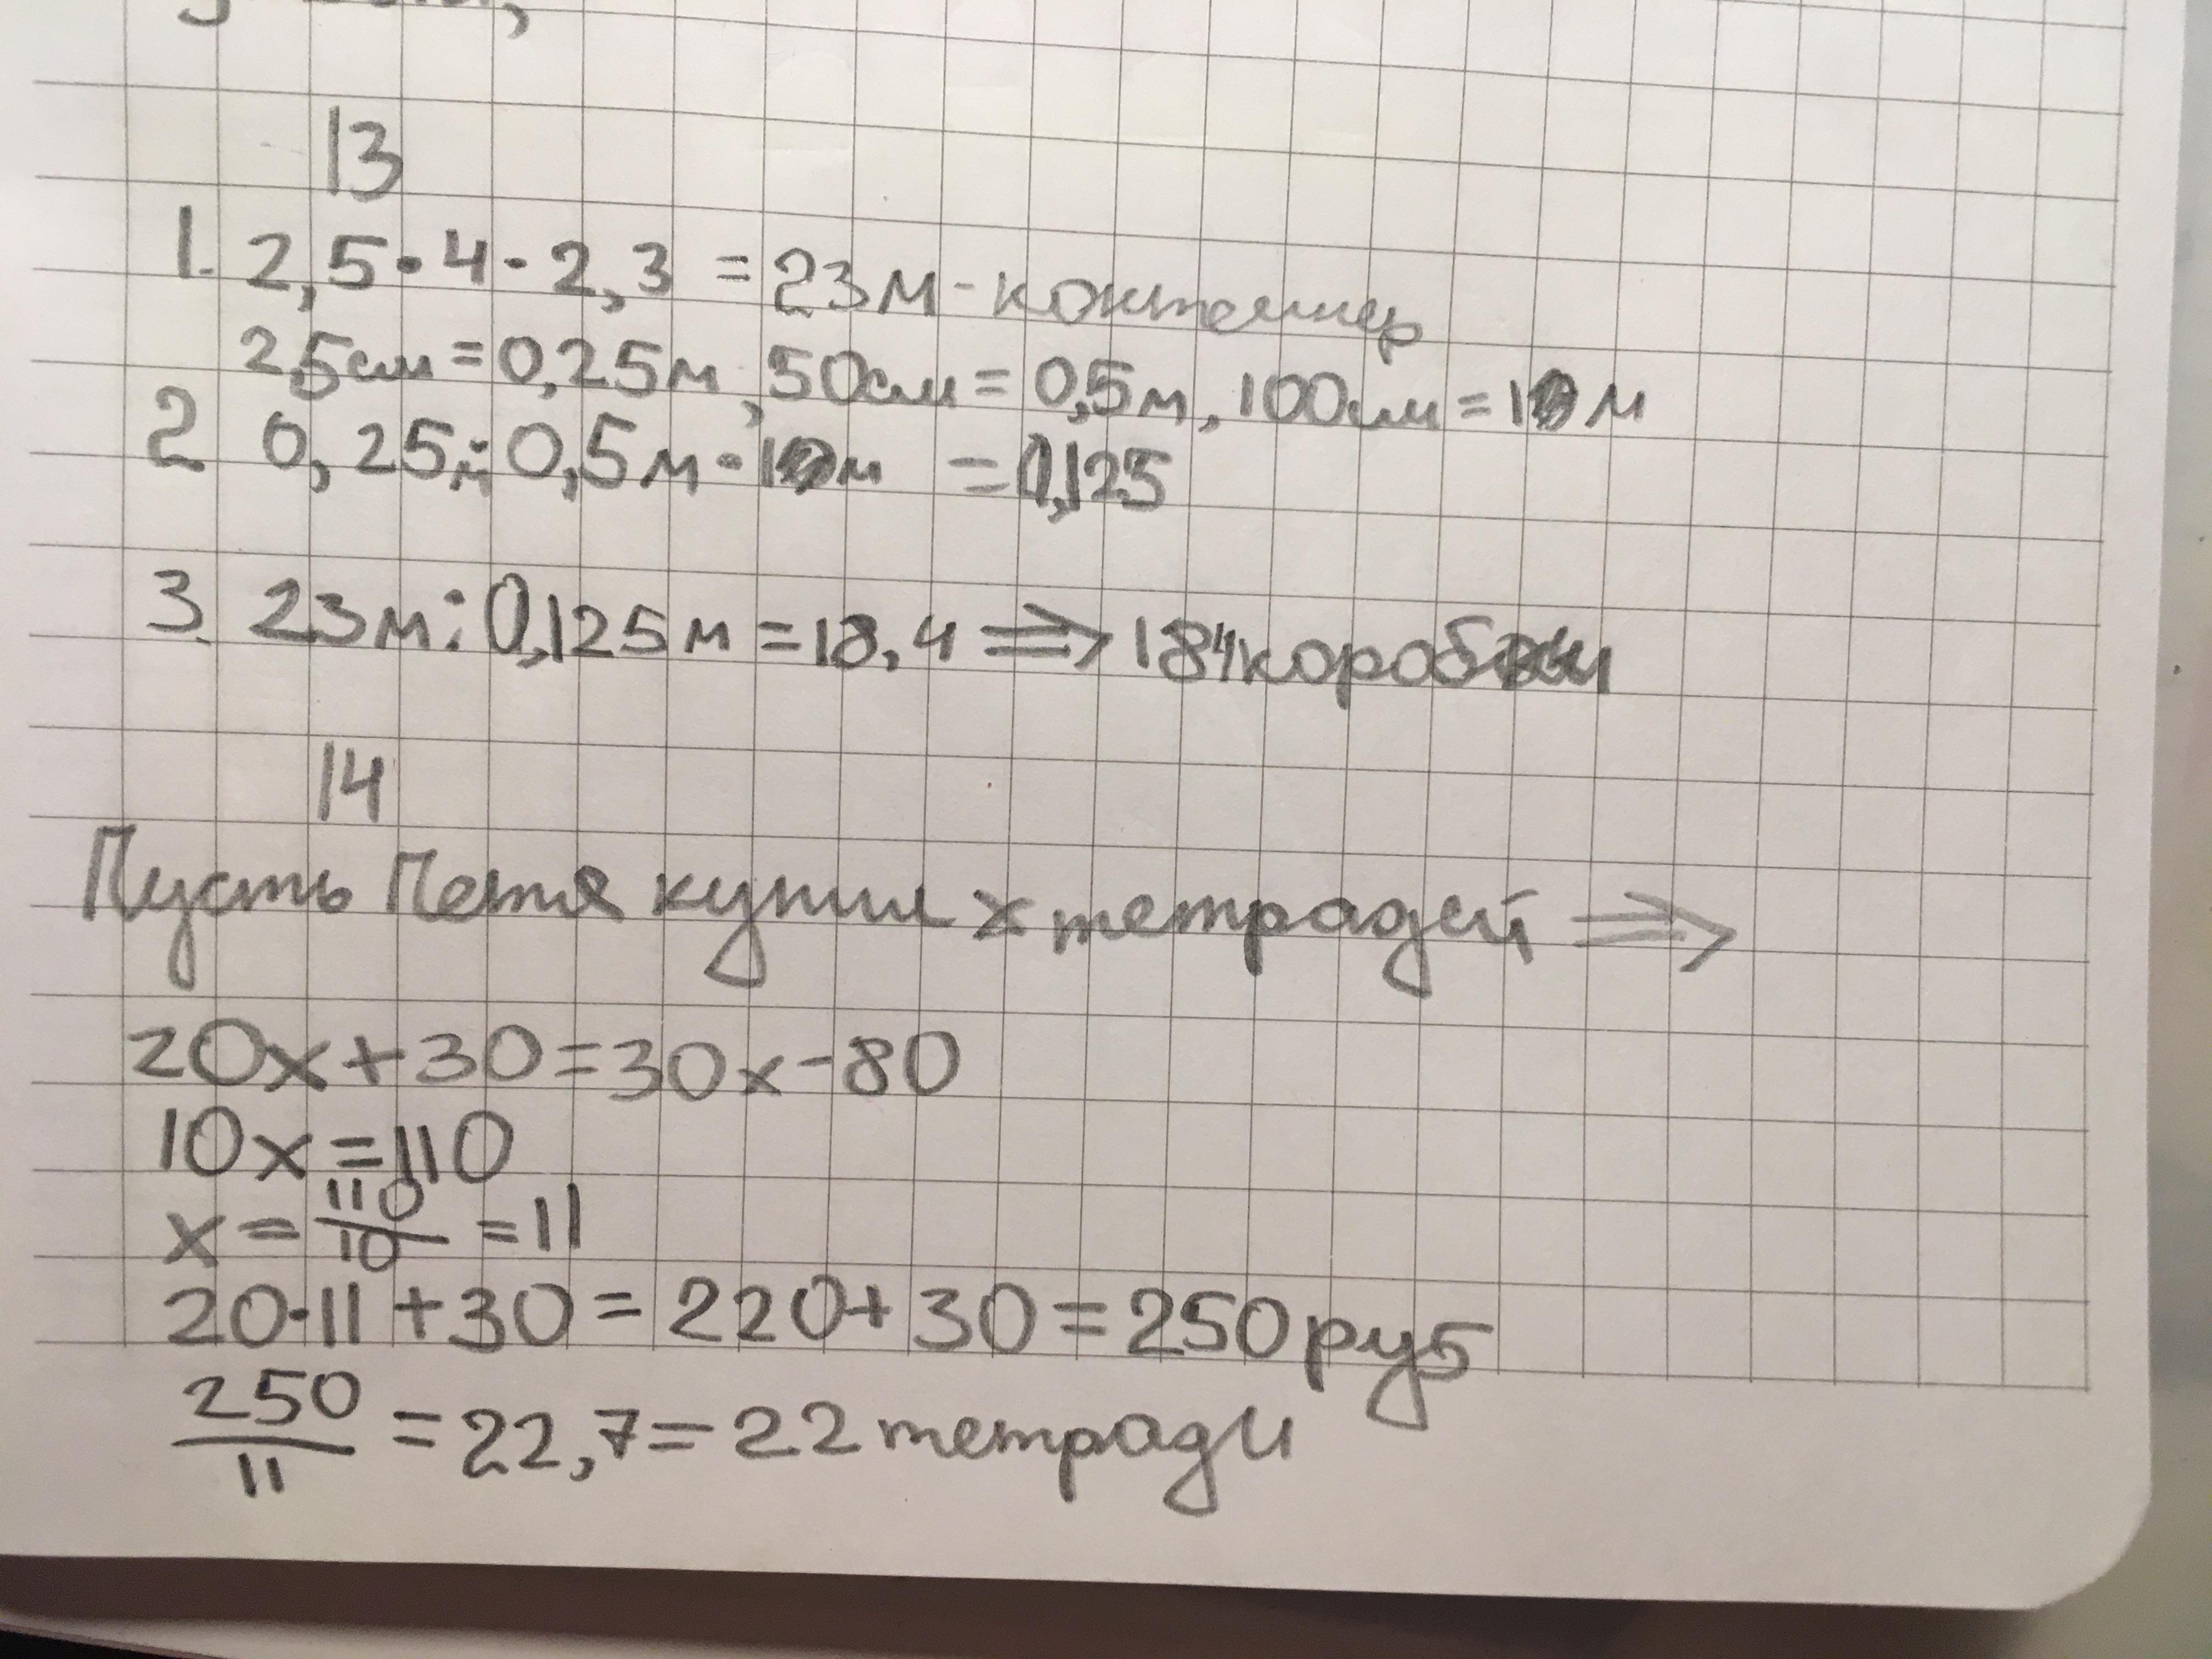 13
1. 2,5 · 4 · 2,3 = 23м - контейнер
2,5см = 0,25м, 50см = 0,5м, 100см = 1 м
2 0,25м · 0,5м · 1 м = 0,125
3. 23м : 0,125м = 18,4 ⇒ 184 коробки
14
Пусть Петя купил x тетрадей ⇒
20x + 30 = 30x - 80
10x = 110
x = 110/10 = 11
20·11 + 30 = 220 + 30 = 250 руб
250/11 = 22,7 = 22 тетради